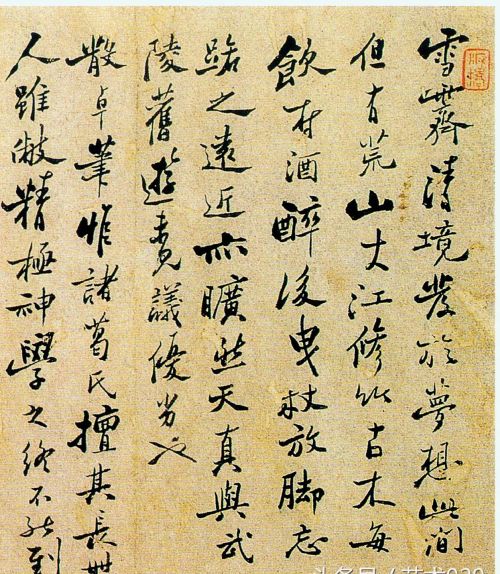 雪霽清境發於夢想此間
但有荒山大江修竹古木每
飲村酒醉後曳杖放脚忘
路之遠近亦曠然天真與武
陵舊遊未易議優劣也
散卓筆惟諸葛氏擅其長世
人雖敝精極神學之終不能到